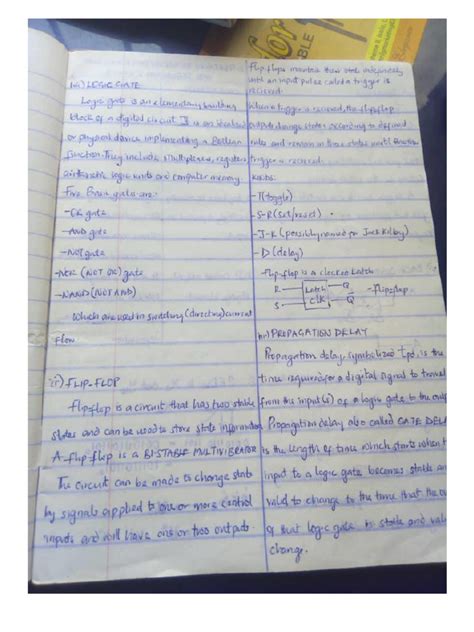 BLE
LOGIC GATE
Logic gate is an elementary building
block of a digital circuit. It is an
or physical device implementing a Boolean
function. They include multiplexers, registers
arithmetic logic units and computer memory.
Five Basic gates are:
-OR gate
-AND gate
-NOT gate
-NOR (NOT OR) gate
-NAND (NOT AND)
Which are used in switching (directing) current
flow
FLIP-FLOP
Flipflop is a circuit that has two stable
states and can be used to store state information
A flip flop is a BISTABLE MULTIVIBRATOR
The circuit can be made to change state
by signals applied to one or more control
inputs and will have one or two outputs.
Flip flops maintain their state indefinitely
until an input pulse called a trigger is
received.
When a trigger is received, the flipflop
outputs change states according to defined
rules and remain in those states until
trigger is received.
-T (toggle)
-S-R (set/reset)
-J-K (possibly named for Jack Kilby)
-D (delay)
-flip-flop is a clocked Latch
R Latch Q
S Clk Q -flipflop
PROPAGATION DELAY
Propagation delay, symbolized tpd, is the
time required for a digital signal to travel
from the input(s) of a logic gate to the
Propagation delay also called GATE
is the length of time which starts when
input to a logic gate becomes stable
valid to change to the time that the
of that logic gate is stable and
change.